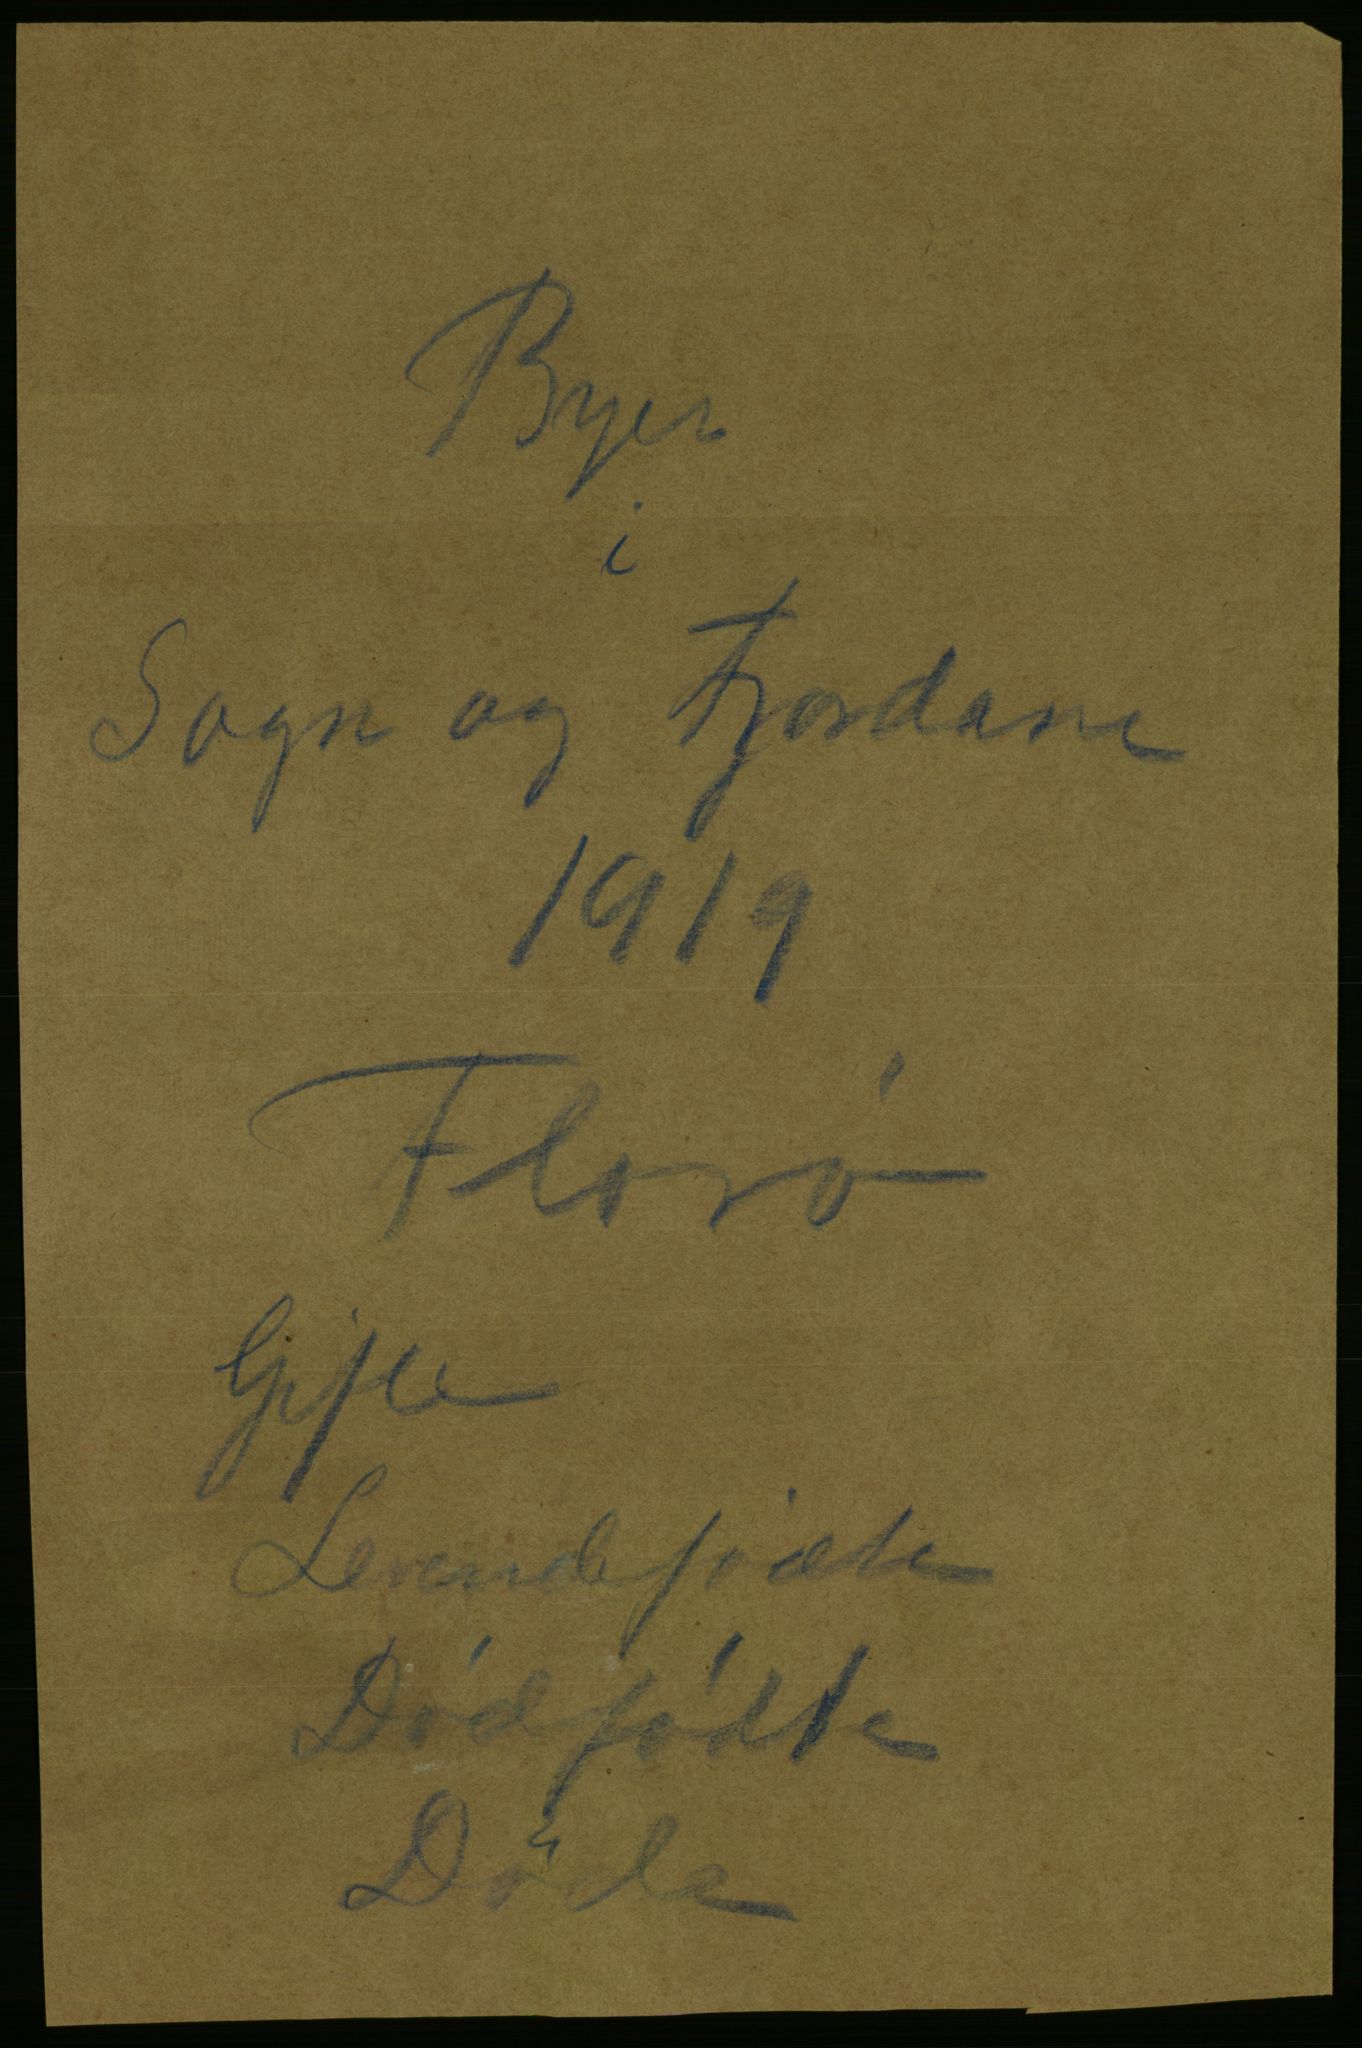 Byer
i
Sogn og Fjordane
1919
Florö
Gifte
Levendefödte
Dödfödte
Döde